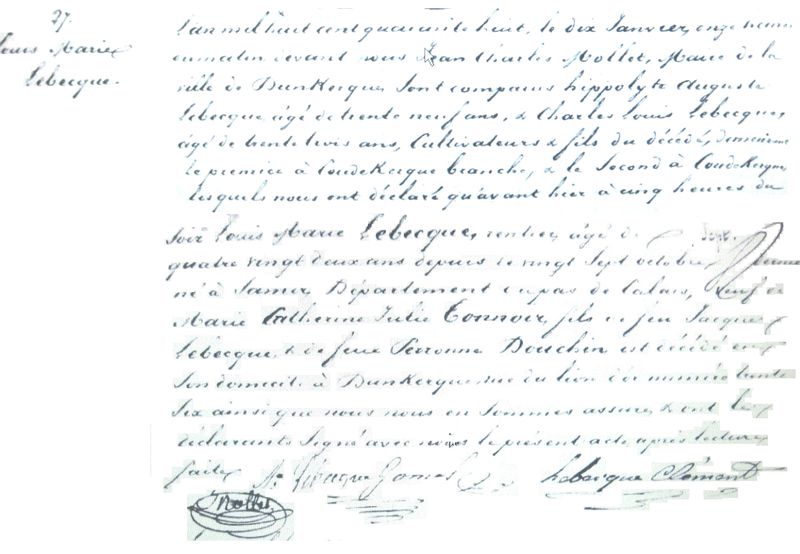 27.
Louis Marie
Lebecque.
L'an mil huit cent quarante huit, le dix Janvier, onze heures
du matin devant nous Jean Charles Mollet, Maire de la
ville de Dunkerque, sont comparus hippolyte Auguste
Lebecque âgé de trente neuf ans, & Charles Louis Lebecque,
âgé de trente trois ans, Cultivateurs & fils du décédé, demeurant
le premier à Coudekerque branche, & le Second à Coudekerque,
lesquels nous ont déclaré qu'avant hier à cinq heures du
Soir Louis Marie Lebecque, rentier, âgé de
quatre vingt deux ans depuis le vingt Sept octobre
né à Samer, Département du pas de Calais, veuf de
Marie Catherine Julie Connoir, fils de feu Jacques
Lebecque, & de feue Peronne Douchin est décédé en
Son domicile à Dunkerque rue du lion d'or numéro trente
Six ainsi que nous nous en Sommes assuré, & ont les
déclarants Signé avec nous le présent acte après lecture
faite
Lebecque Clément
Mollet